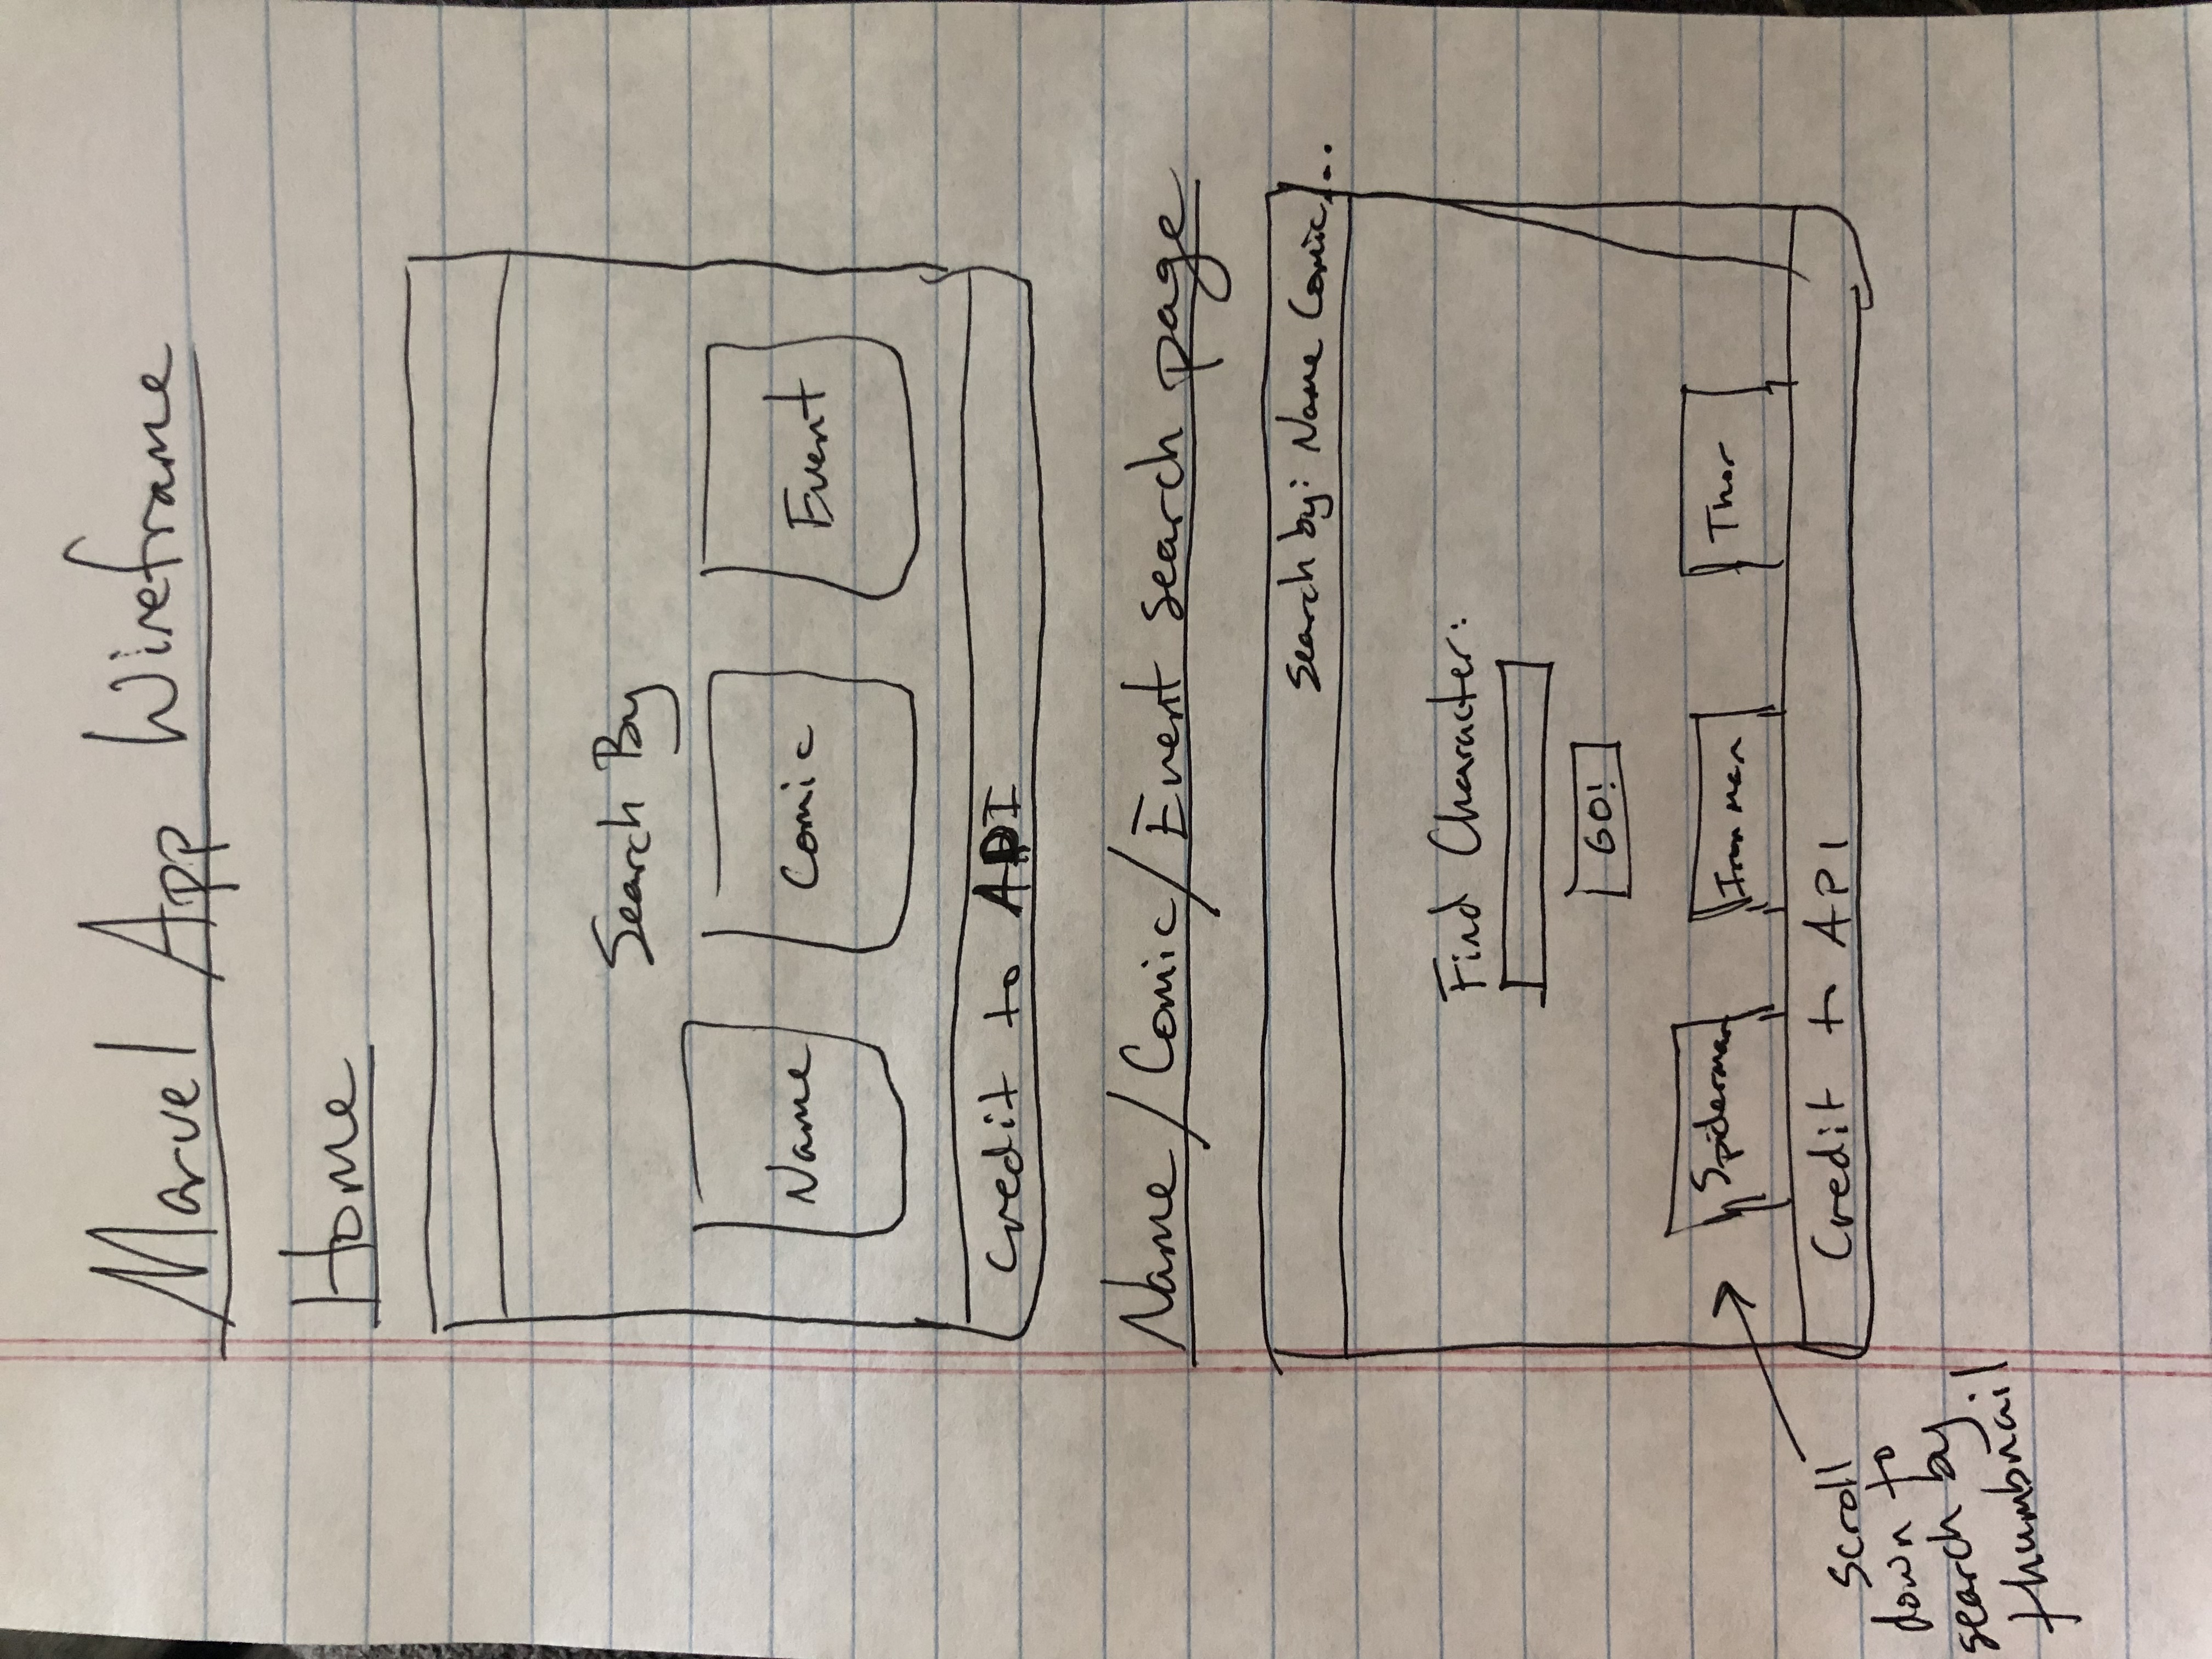 Marvel App Wireframe
Home
Search By
Name Comic Event
Credit to API
Name/Comic/Event search page
search by: Name Comic...
Find Character:
GO!
Spiderman Iron man Thor
Credit to API
scroll
down to
search by
thumbnail